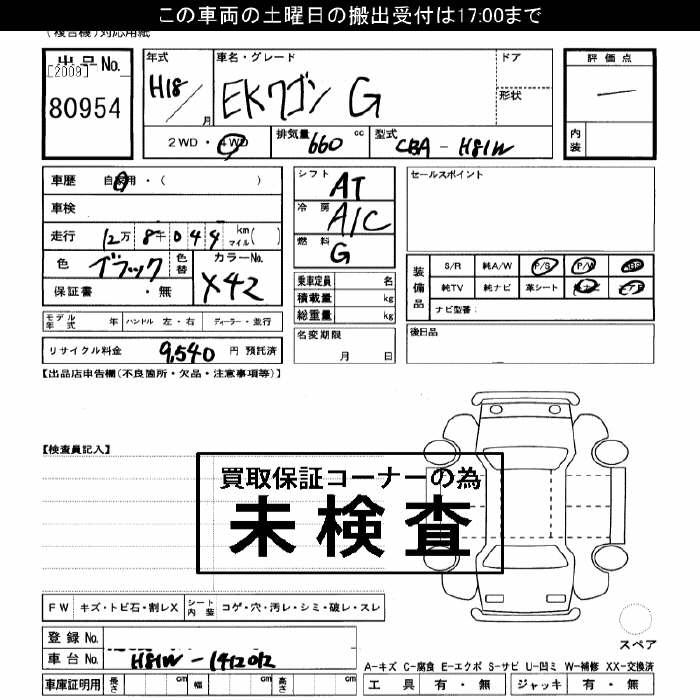 この車両の土曜日の搬出受付は17:00まで
(複合機)対応用紙
出品No.
[2009]
80954
年式
H18
月
車名・グレード
EKワゴン G
ドア
形状
2WD・4WD
排気量 660 cc
型式 CBA-H81W
評価点
内装
車歴 自家用・( )
車検
走行 12万 8千 0 4 4 km マイル( )
色 ブラック 色替
カラーNo. X42
保証書 ・無
シフト AT
冷房 A/C
燃料 G
乗車定員 名
積載量 kg
総重量 kg
名変期限
月 日
セールスポイント
装備品
S/R 純A/W P/S P/W ABS
純TV 純ナビ 革シート
ナビ型番:
後日品
モデル年式 年 ハンドル 左・右 ディーラー・並行
リサイクル料金 9,540 円 預託済
【出品店申告欄(不良箇所・欠品・注意事項等)】
【検査員記入】
買取保証コーナーの為
未検査
FW キズ・トビ石・割レX シート内装 コゲ・穴・汚レ・シミ・破レ・スレ
登録No.
車台No. H81W-1412012
車庫証明用 長さ cm 幅 cm 高さ cm
スペア
A-キズ C-腐食 E-エクボ S-サビ U-凹ミ W-補修 XX-交換済
工具 有・無 ジャッキ 有・無